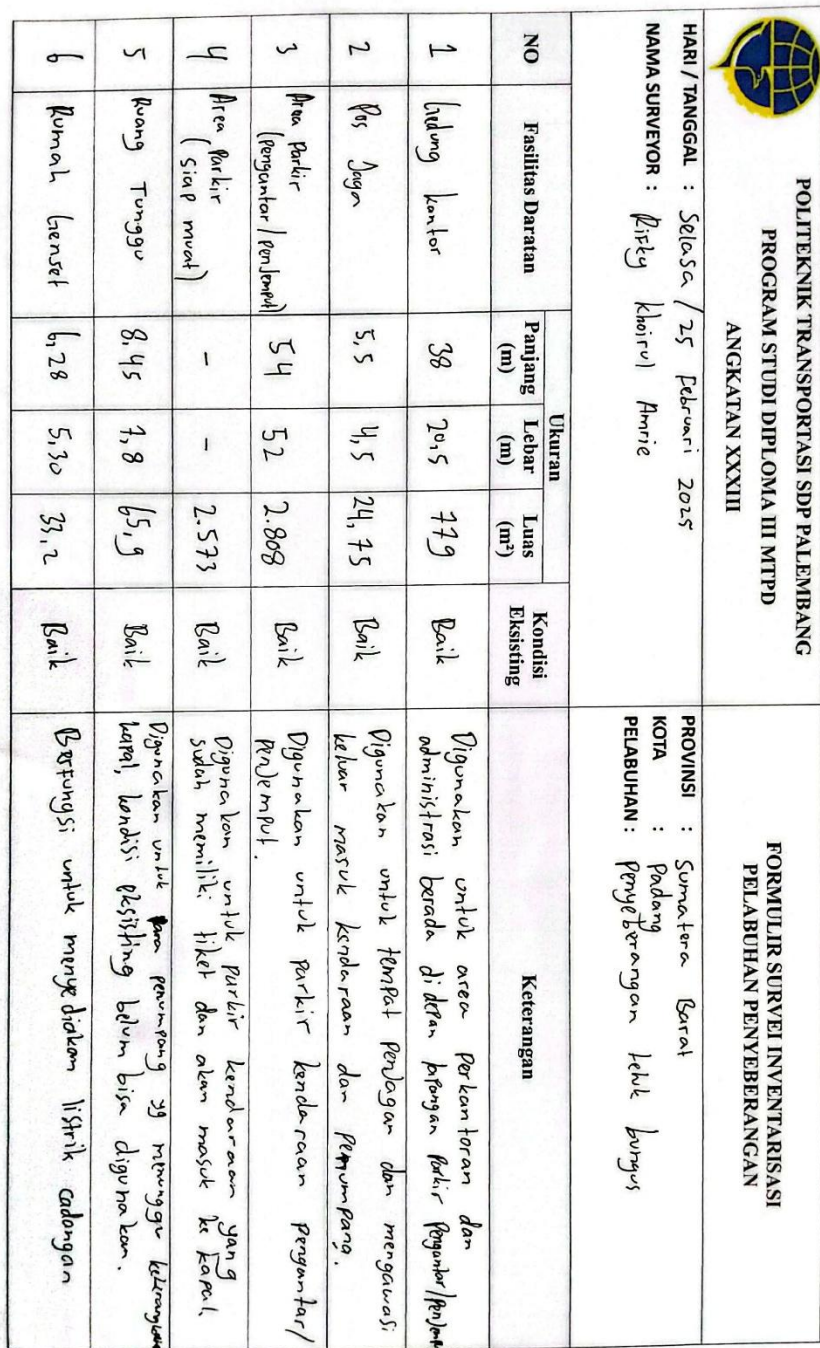 POLITEKNIK TRANSPORTASI SDP PALEMBANG
PROGRAM STUDI DIPLOMA III MTPD
ANGKATAN XXXIII
FORMULIR SURVEI INVENTARISASI
PELABUHAN PENYEBERANGAN
HARI / TANGGAL : Selasa / 25 Februari 2025
NAMA SURVEYOR : Rifky Khoirul Amrie
PROVINSI : Sumatera Barat
KOTA : Padang
PELABUHAN : Penyeberangan teluk bungus
NO Fasilitas Daratan Ukuran Kondisi Eksisting Keterangan
Panjang (m) Lebar (m) Luas (m²)
1 Gedung kantor 38 20,5 779 Baik Digunakan untuk area perkantoran dan
administrasi berada di depan lapangan parkir Pengantar/penjemput
2 Pos Jaga 5,5 4,5 24,75 Baik Digunakan untuk tempat penjagan dan mengawasi
keluar masuk kendaraan dan penumpang.
3 Area Parkir (pengantar/penjemput) 54 52 2.808 Baik Digunakan untuk parkir kendaraan pengantar/
penjemput.
4 Area Parkir (siap muat) - - 2.573 Baik Digunakan untuk parkir kendaraan yang
sudah memiliki tiket dan akan masuk ke kapal.
5 Ruang Tunggu 8.45 7,8 65,9 Baik Digunakan untuk para penumpang yg menunggu
kapal, kondisi eksisting belum bisa digunakan.
6 Rumah Genset 6,28 5,30 33,2 Baik Berfungsi untuk menyediakan listrik cadangan